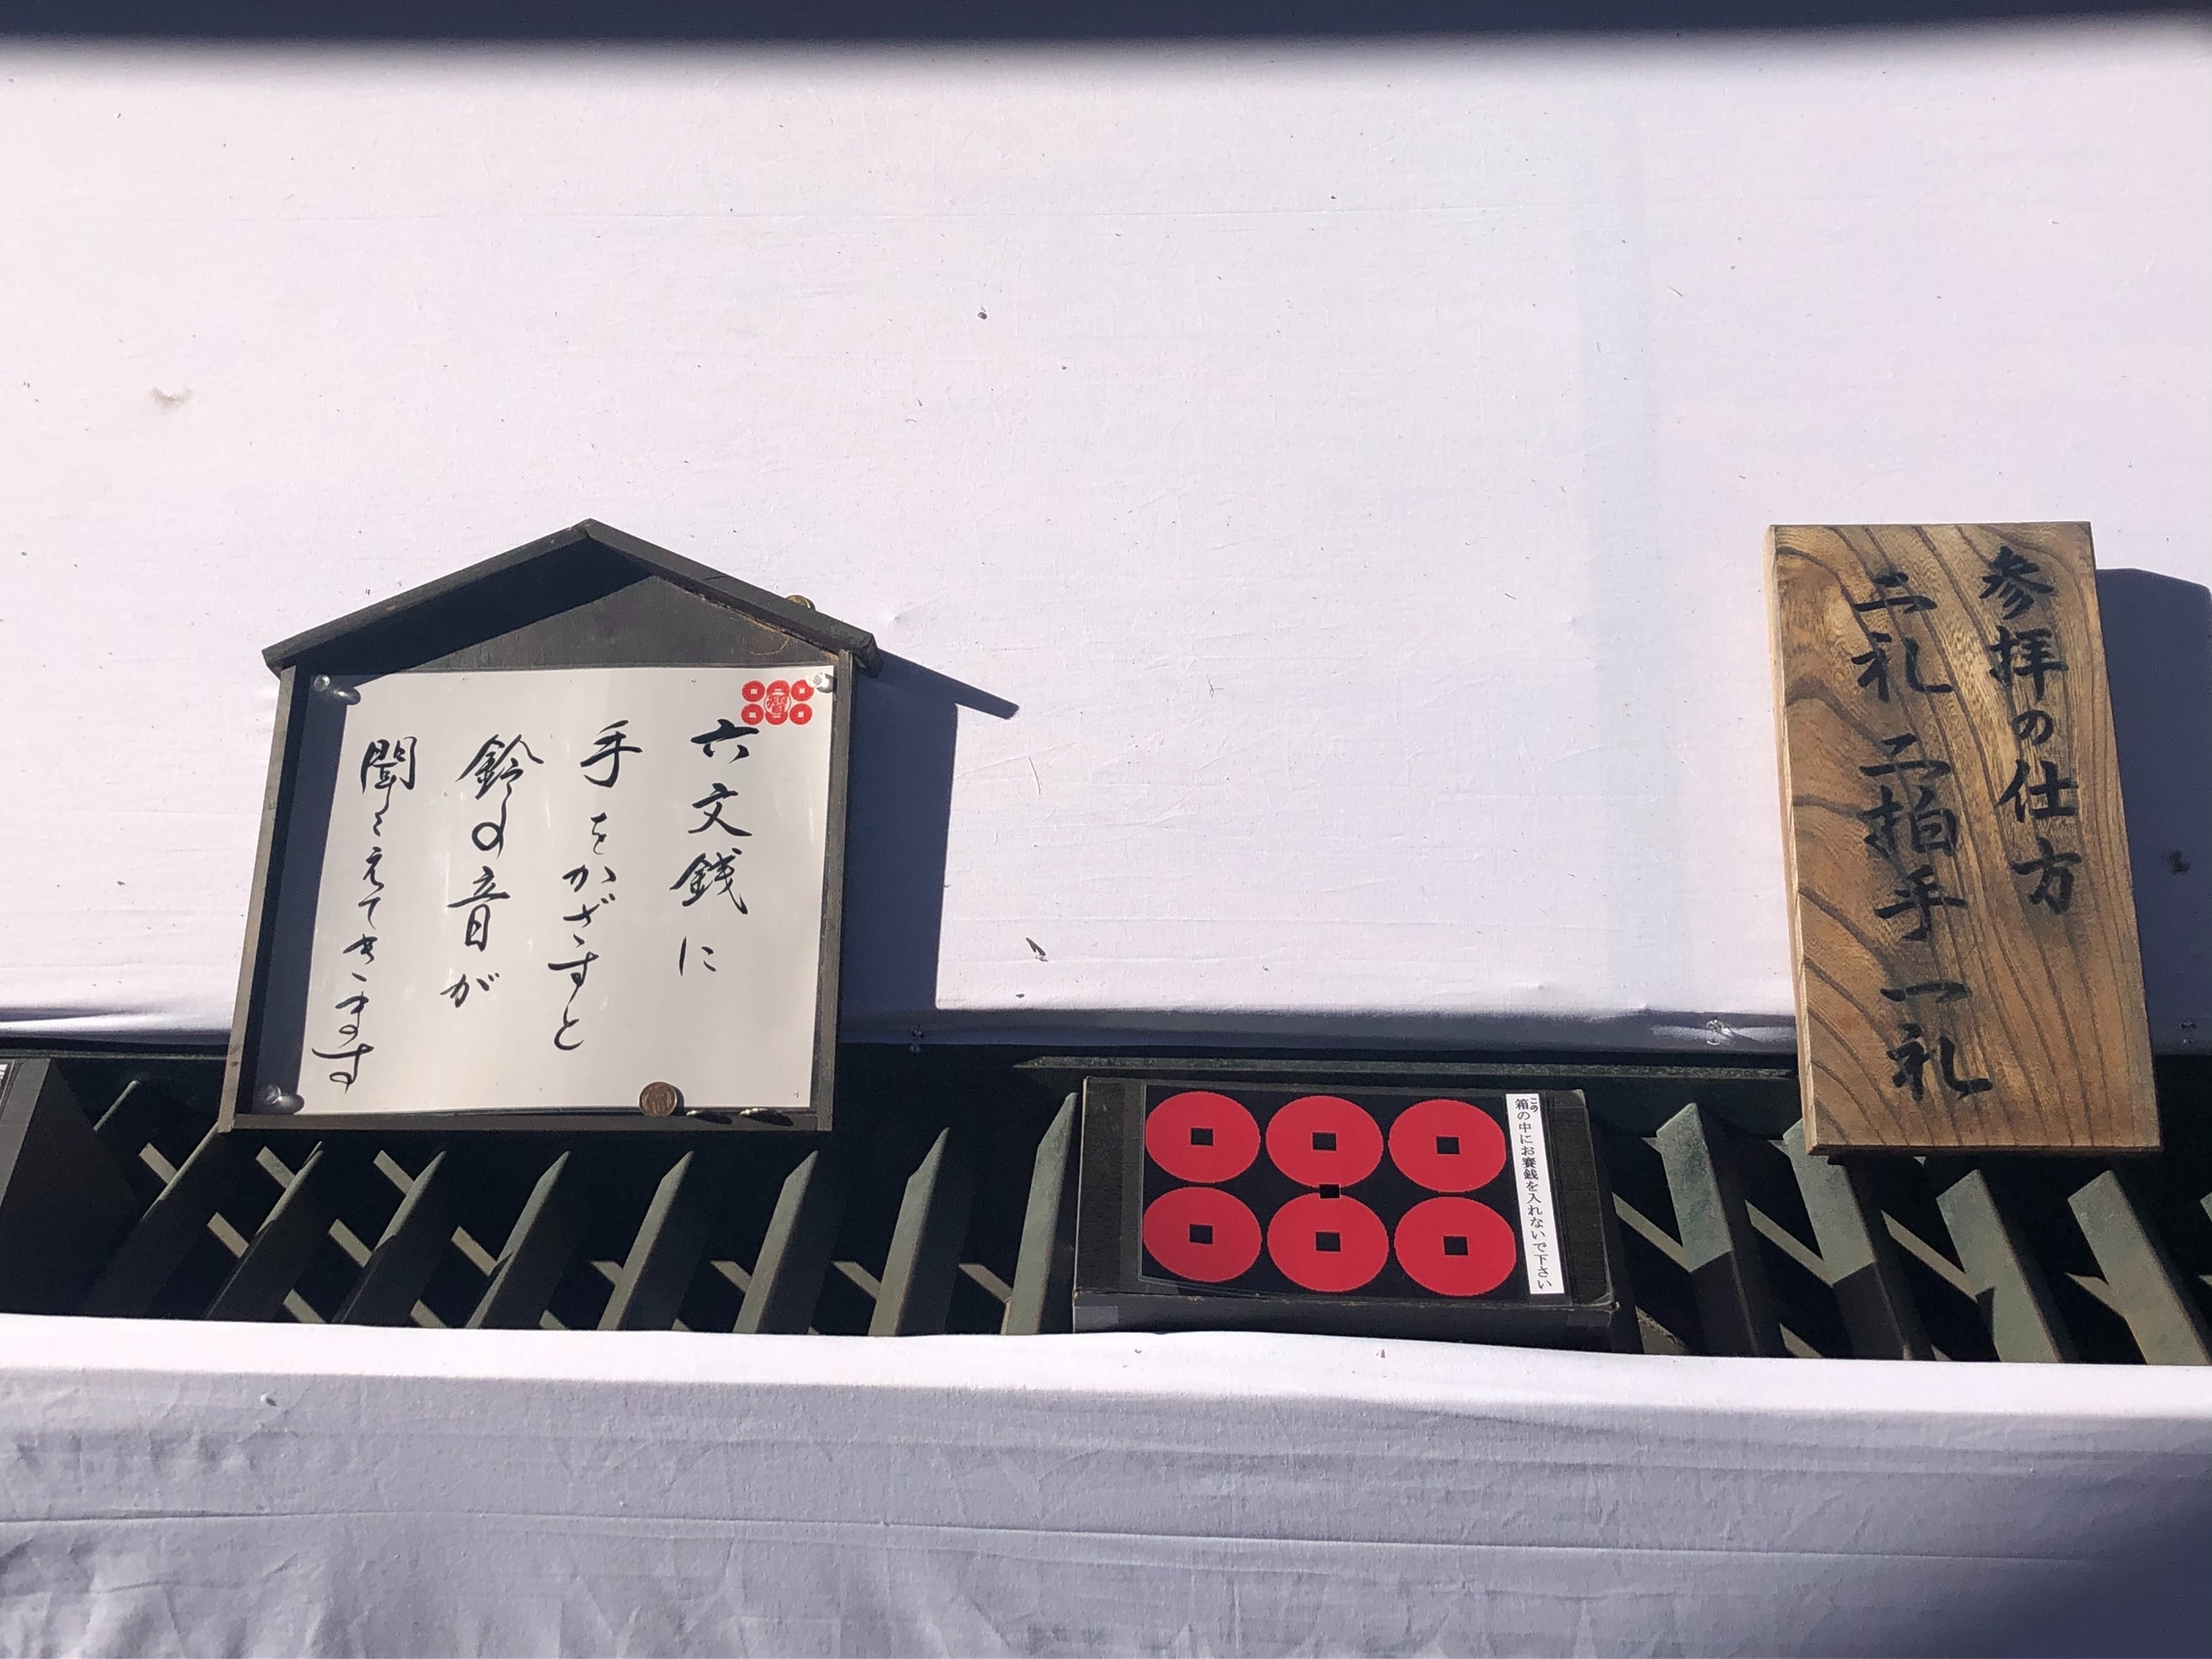 参拝の仕方
二礼二拍手一礼
この
箱の中にお賽銭を入れないで下さい
六文銭に
手をかざすと
鈴の音が
聞こえてきます